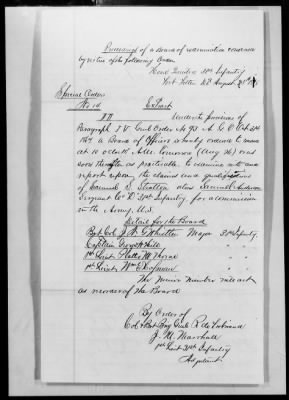 Proceedings of a Board of examination convened
by virtue of the following Order
Head Quarters 31st Infantry
August
Special Orders
No 14
Extract
VII Under the provisions of
Paragraph I V Genl Order No 93 A. G. O. Oct
1867 a Board of Officers is hereby ordered to convene
at 10 oclock A.M. tomorrow (Aug 26) or as
soon thereafter as practicable to examine into and
report upon the claims and qualifications
of Samuel S. Stratton alias Samuel Anderson
Sergeant Co D 31st Infantry for a commission
in the Army U.S.
Detail for the Board
Bvt Col J. N. G. Whistler Major 31st Infantry
Captain Hall " "
1st Lieut Platt M. Thorne " "
1st Lieut Wm " "
The junior member will act
as recorder of the Board
By Order of
Col & Bvt Maj Genl R de Trobriand
J. M. Marshall
1st Lieut 31st Infantry
Adjutant